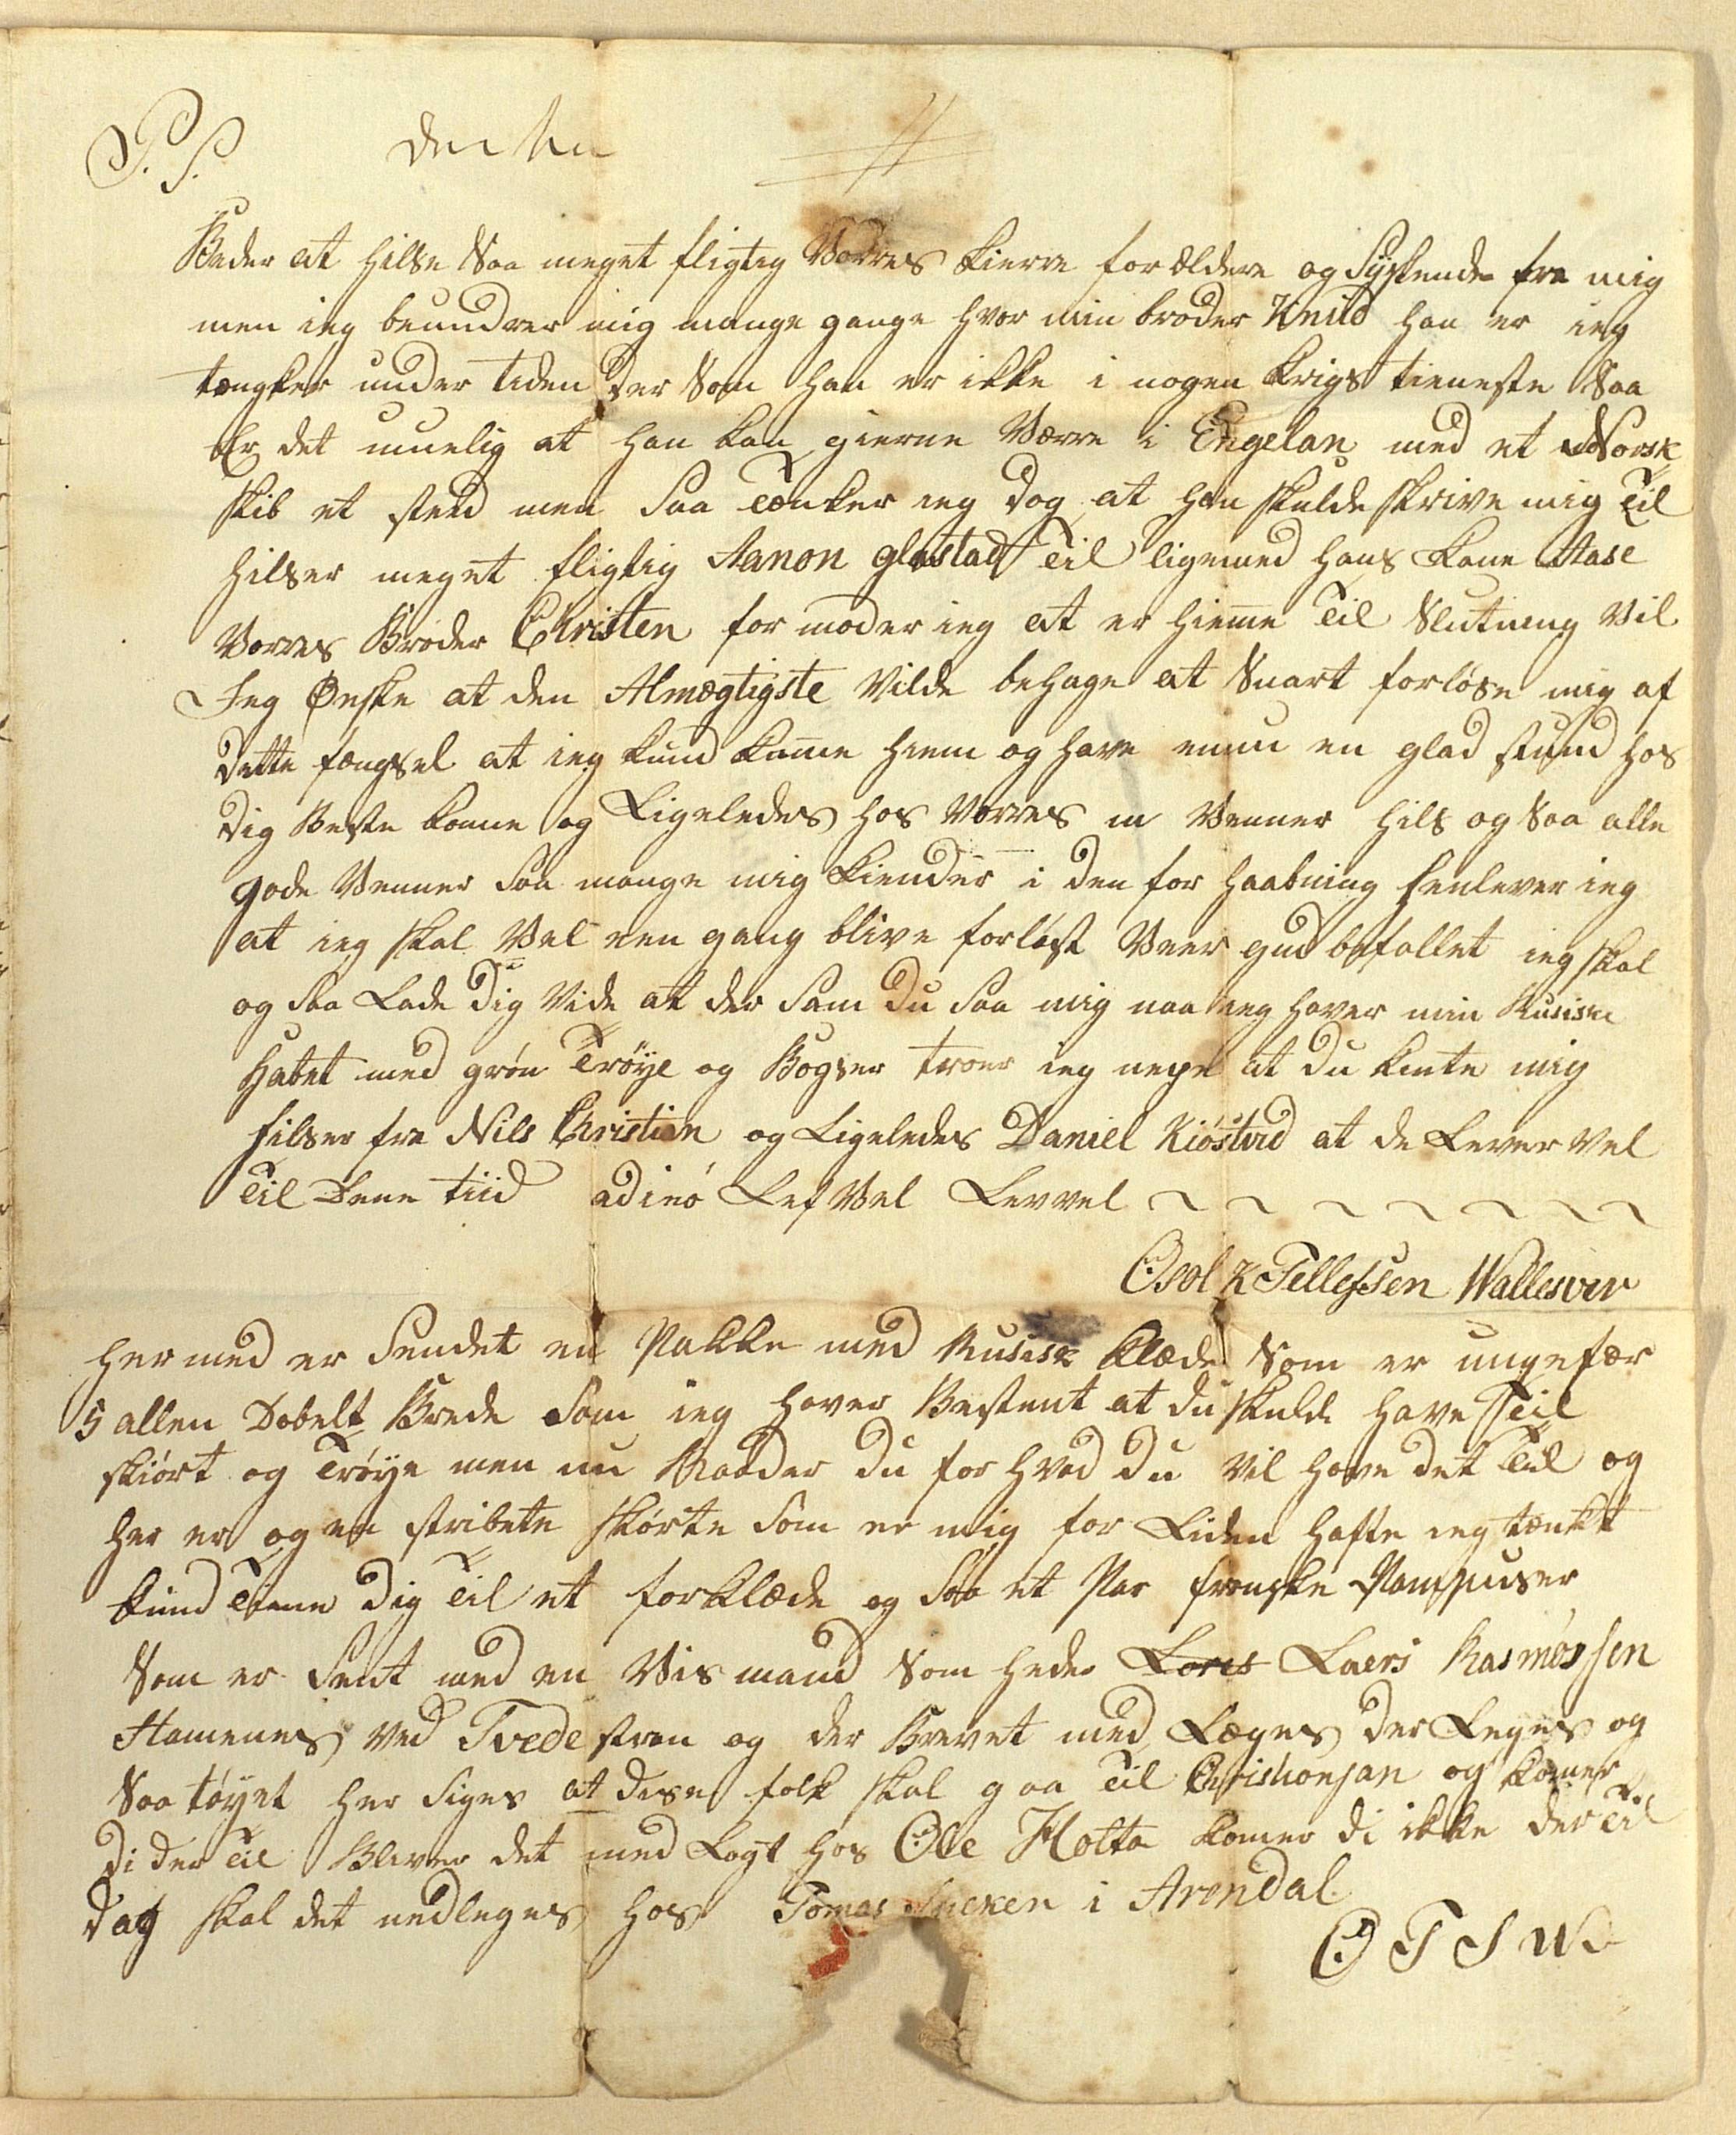 P. S.
Beder at hilse saa meget fligtig Vorres kierre forældere og Syskende fra mig
men ieg beundrer mig mange gange hvor min broder Knud han er ieg
tængker under tiden der som han er ikke i nogen krigs tieneste saa
Er det muelig at han kan gierne Værre i Engelan med et Norsk
skib et sted men saa tenker ieg dog at han skulde skrive mig Til
hilser meget fligtig Aanon glastad Til ligemed hans kone Aase
Vorres Broder Christen for moder ieg at er hieme Til Slutning Vil
Jeg Ønske at den Almægtigste Vilde behage at Snart forløse mig af
dette fængsel at ieg kund kome hiem og have ennu en glad stund hos
dig Beste kone og Ligeledes hos Vorres Venner hils og saa alle
gode Venner saa mange mig kiender i den for haabning henlever ieg
at ieg skal Vel een gang blive forløst Veer gud befallet ieg skal
og saa Lade dig Vide at der som du saa mig naa ieg haver min Rusiske
Habet med grøn Trøye og Bogser troer ieg nepe at du kente mig
hilser fra Nils Christian og Ligeledes Daniel Kiøstvid at de Lever Vel
Til Dene tiid adieø Lef Vel Levvel
Osol K Tellefsen Wallesver
her med er Sendet en Pakke med Rusisk klæde Som er ungefær
5 allen Dobelt Brede Som ieg haver Bestemt at du skulde have Til
skiørt og Trøye men nu Raader du for hvad du vil have det Til og
her er og en stribete skiorte Som er mig for Liden hafte ieg tænkt
kund Tiene dig Til et forklæde og Saa et Par franske Pampuser
Som er Sent med en Vis mand Som heder Lores Laers Rasmøssen
Hamenes Ved Tvede stran og der Brevet med Leges der Leges og
Saa tøyet her Siges at dise folk skal gaa Til Christionsan og komer
di der Til Bliver det med Lagt hos Ole Holta komer di ikke der Til
dag skal det nedleges hos Tomas i Arendal
O T S W